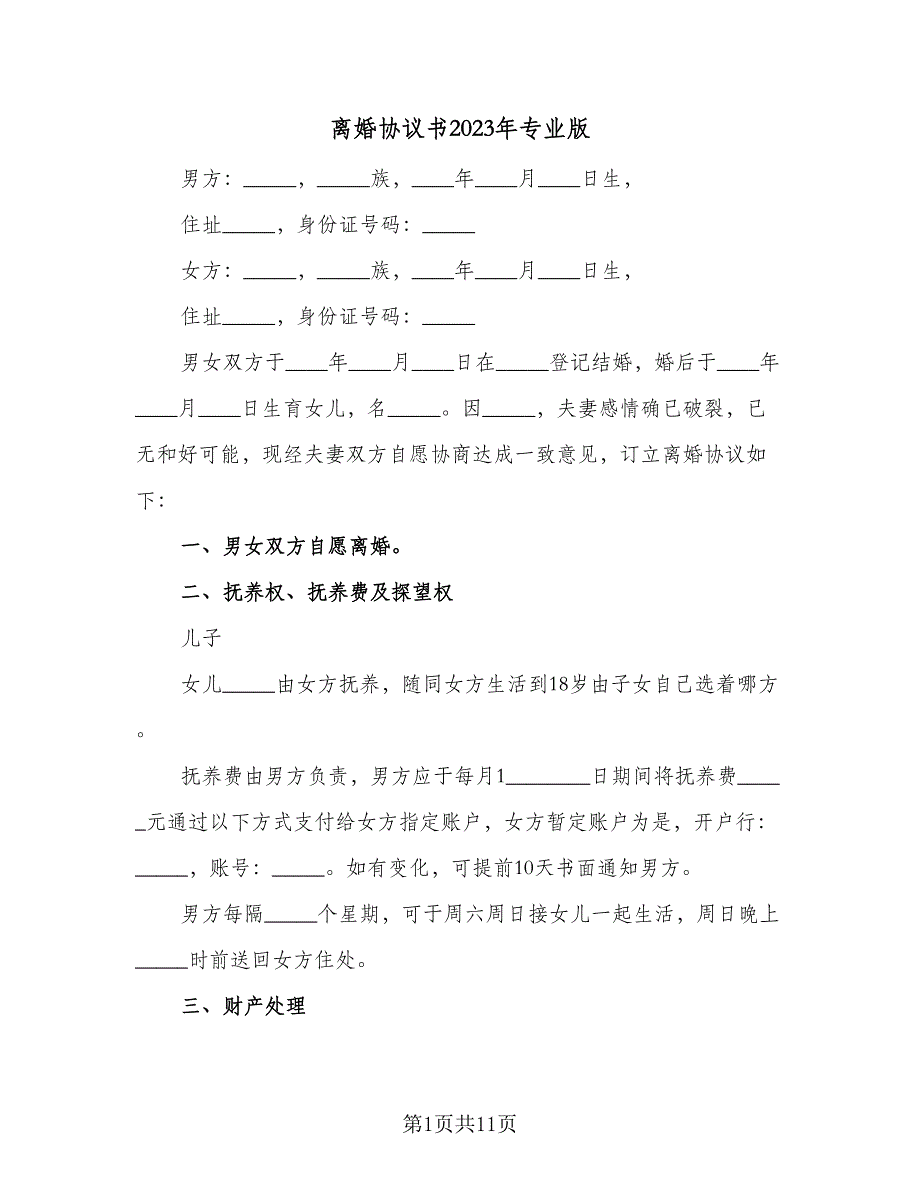 离婚协议书2023年专业版
男方：_____，_____族，____年____月____日生，
住址_____，身份证号码：_____
女方：_____，_____族，____年____月____日生，
住址_____，身份证号码：_____
男女双方于____年____月____日在_____登记结婚，婚后于____年
____月____日生育女儿，名_____。因_____，夫妻感情确已破裂，已
无和好可能，现经夫妻双方自愿协商达成一致意见，订立离婚协议如
下：
一、男女双方自愿离婚。
二、抚养权、抚养费及探望权
儿子
女儿_____由女方抚养，随同女方生活到18岁由子女自己选着哪方
。
抚养费由男方负责，男方应于每月1________日期间将抚养费____
_元通过以下方式支付给女方指定账户，女方暂定账户为是，开户行：
_____，账号：_____。如有变化，可提前10天书面通知男方。
男方每隔_____个星期，可于周六周日接女儿一起生活，周日晚上
_____时前送回女方住处。
三、财产处理
第1页共11页